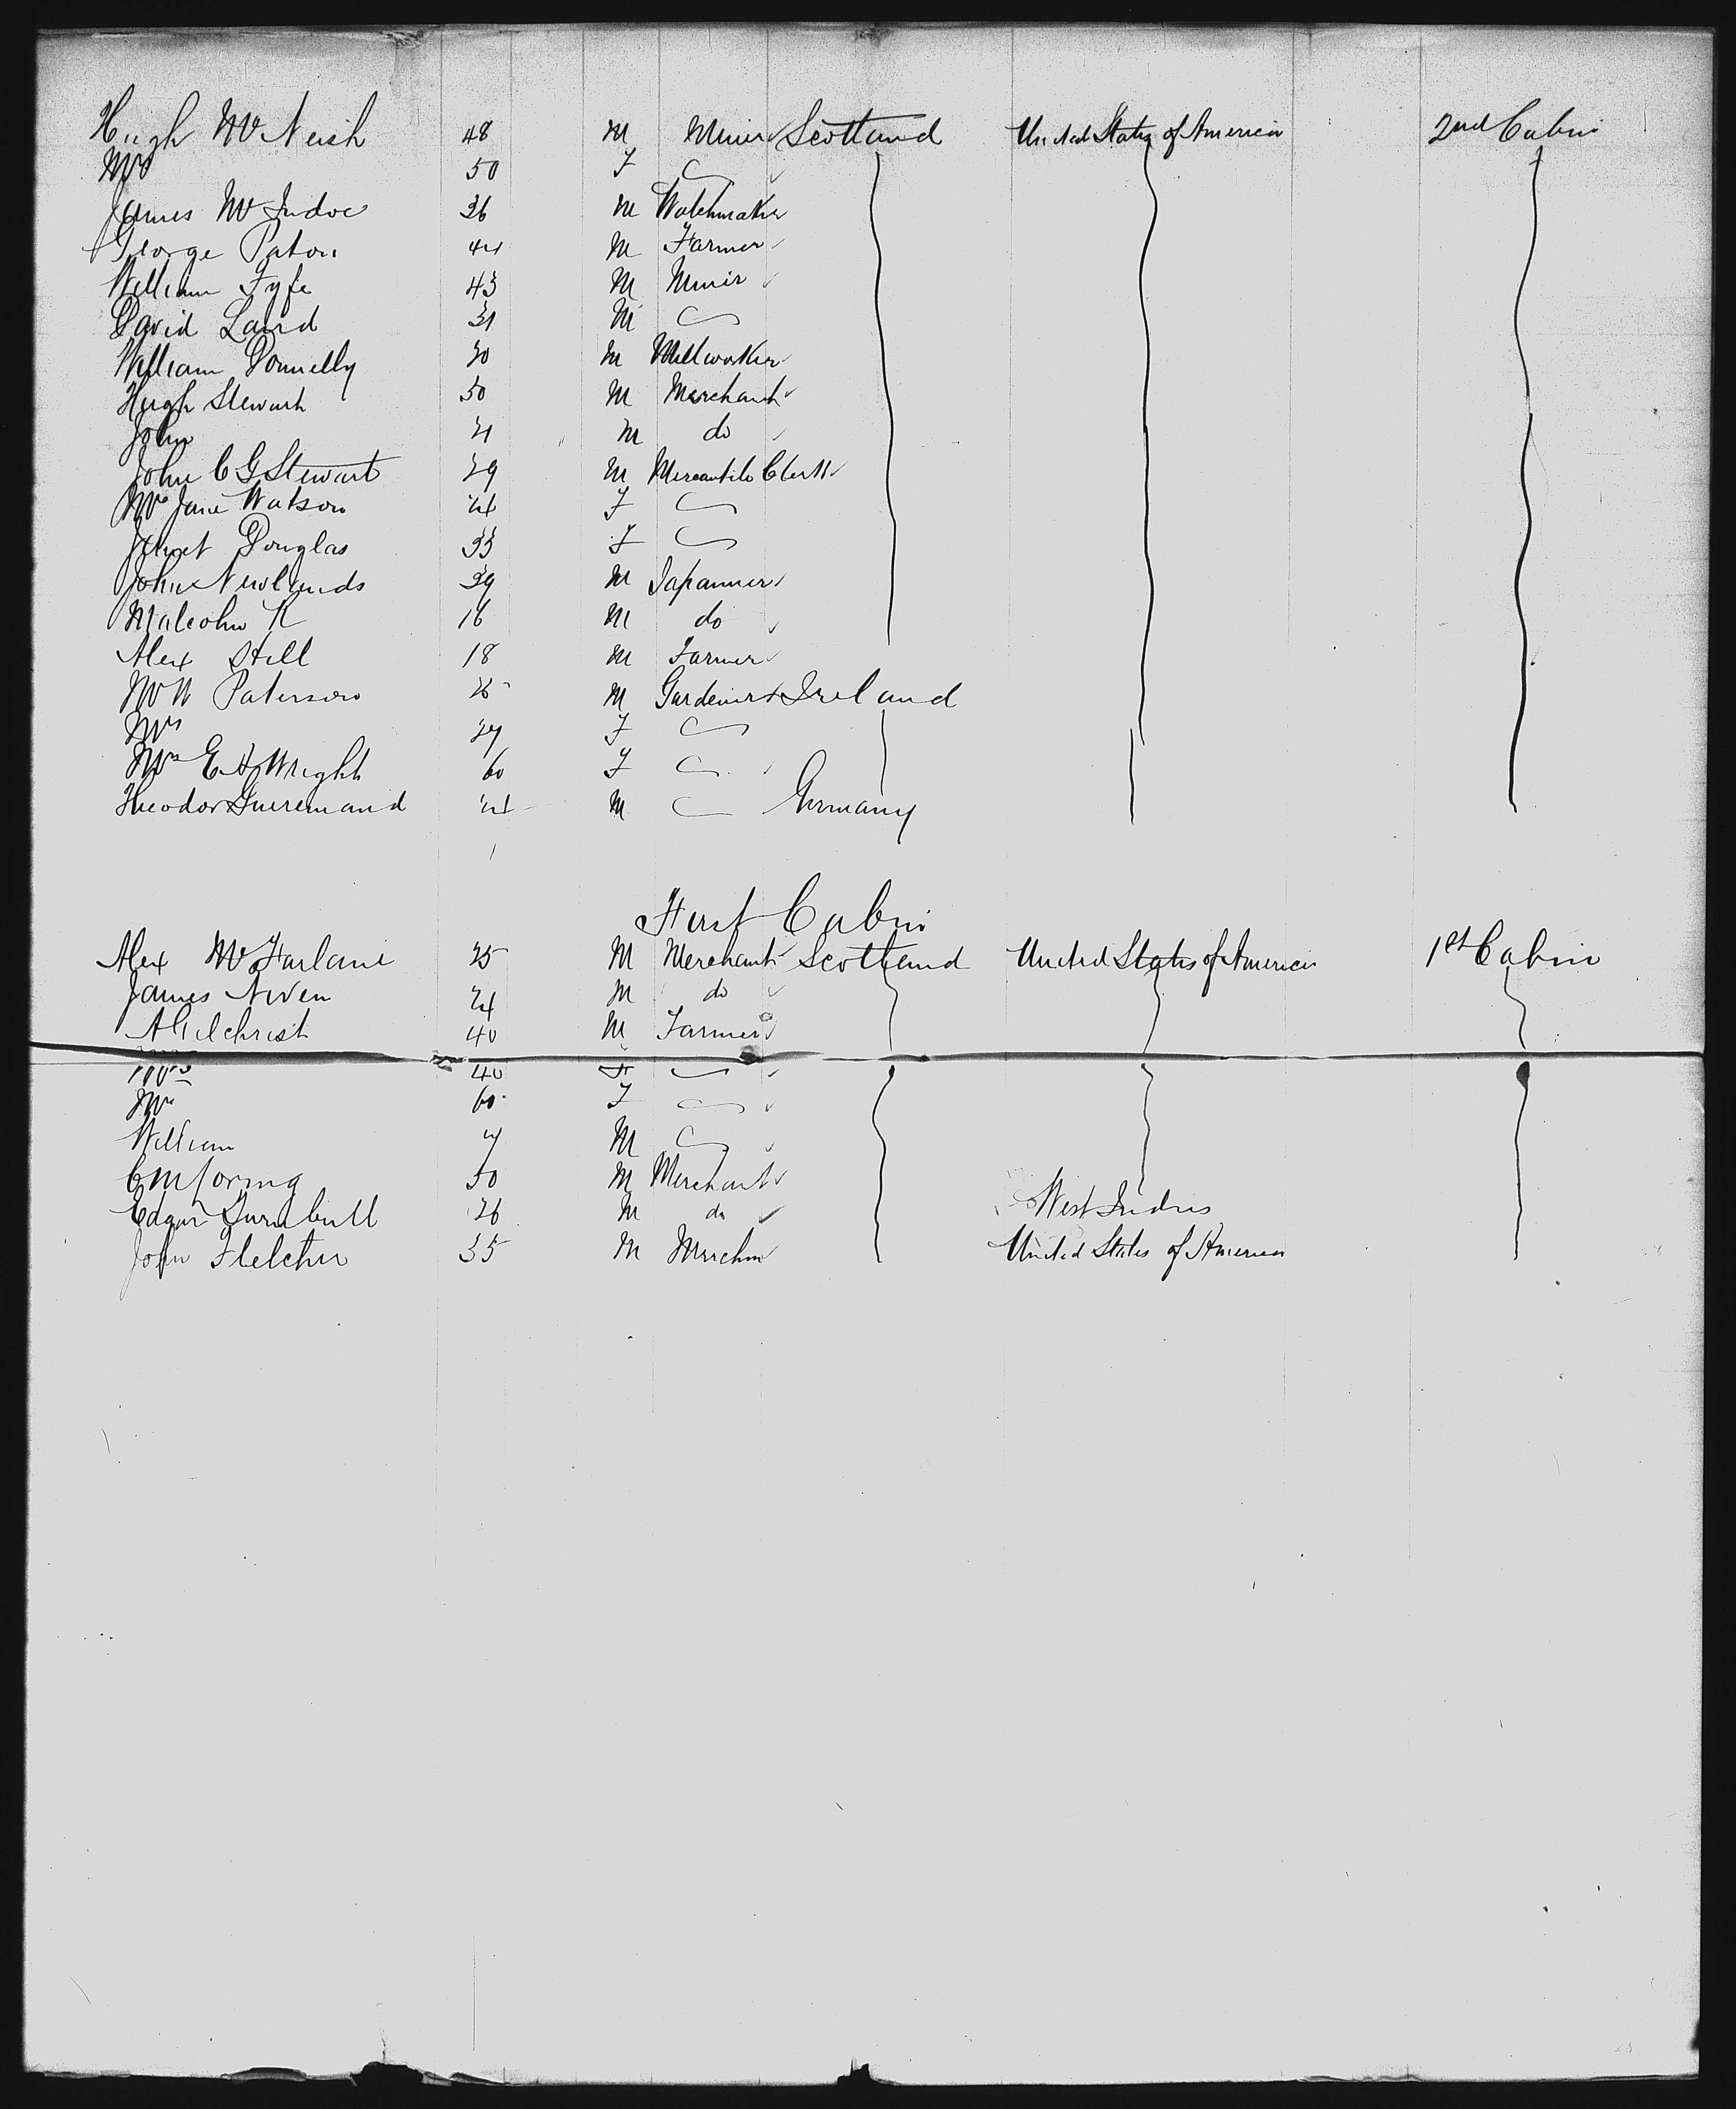 Hugh McNeish 48 M Miner Scotland United States of America 2nd Cabin
Mrs 50 F
James McIndoe 26 M Watchmaker
George Paton 44 M Farmer
William Fyfe 43 M Miner
David Laird 31 M
William Donnelly 30 M Millworker
Hugh Stewart 50 M Merchant
John 21 M do
John C G Stewart 29 M Mercantile Clerk
Mrs Jane Watson F
Janet Douglas 33 F
John Newlands 39 M Japanner
Malcolm N 16 M do
Alex Still 18 M Farmer
Paterson 25 M Gardener Ireland
Mrs 27 F
Mrs E A Wright 60 F
Theodor 24 M Germany
First Cabin
Alex McFarlane 25 M Merchant Scotland United States of America 1st Cabin
James Niven 24 M do
A Gilchrist 40 M Farmer
Mrs 40 F
60 F
William M
50 M Merchant
Edgar Turnbull 26 M do West Indies
John Fletcher 35 M United States of America